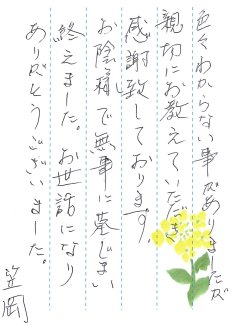 色々わからない事がありましたが
親切にお教えていただき
感謝致しております。
お陰様で無事に墓じまい
終えました。お世話になり
ありがとうございました。
笠岡